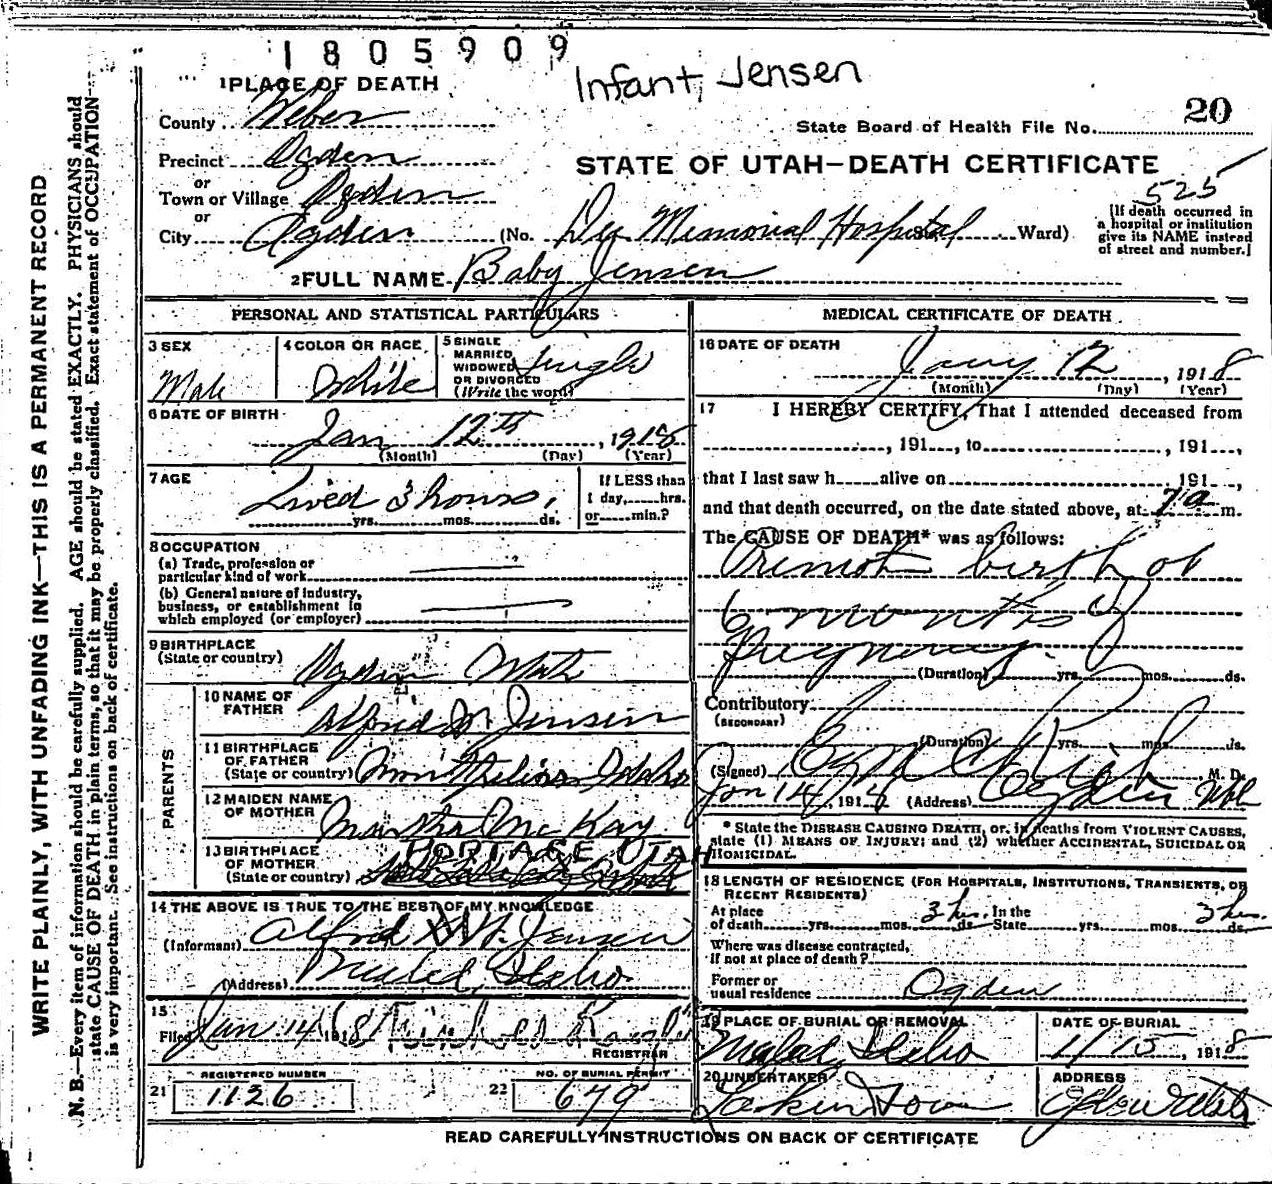 1805909
Infant, Jensen
1 PLACE OF DEATH
20
County Weber
State Board of Health File No.
Precinct Ogden
STATE OF UTAH—DEATH CERTIFICATE
or
Town or Village Ogden
525
or
City Ogden (No. Dee Memorial Hospital St. Ward)
[If death occurred in
a hospital or institution
give its NAME instead
of street and number.]
2 FULL NAME Baby Jensen
PERSONAL AND STATISTICAL PARTICULARS
3 SEX
Male
4 COLOR OR RACE
White
5 SINGLE
MARRIED
WIDOWED
OR DIVORCED
(Write the word)
Single
6 DATE OF BIRTH
Jan 12th, 1918
(Month) (Day) (Year)
7 AGE
Lived 3 hours.
yrs. mos. ds.
If LESS than
1 day, hrs.
or min.?
8 OCCUPATION
(a) Trade, profession or
particular kind of work
(b) General nature of industry,
business, or establishment in
which employed (or employer)
9 BIRTHPLACE
(State or country) Ogden Utah
PARENTS
10 NAME OF
FATHER Alfred M Jensen
11 BIRTHPLACE
OF FATHER
(State or country) Idaho
12 MAIDEN NAME
OF MOTHER Martha McKay
13 BIRTHPLACE
OF MOTHER
(State or country) PORTAGE UTAH
14 THE ABOVE IS TRUE TO THE BEST OF MY KNOWLEDGE
(Informant) Alfred M. Jensen
(Address) Malad, Idaho
15
Filed Jan 14 1918
REGISTRAR
REGISTERED NUMBER
21 1126
NO. OF BURIAL PERMIT
22 679
MEDICAL CERTIFICATE OF DEATH
16 DATE OF DEATH
Jany 12, 1918
(Month) (Day) (Year)
17 I HEREBY CERTIFY, That I attended deceased from
, 191 , to , 191 ,
that I last saw h alive on 191 ,
and that death occurred, on the date stated above, at 7 a m.
The CAUSE OF DEATH* was as follows:
Premat birth at
6 months of
Pregnancy.
(Duration) yrs. mos. ds.
Contributory
(SECONDARY)
(Duration) yrs. mos. ds.
(Signed) M. D.
Jan 14, 191 (Address) Ogden Utah
* State the DISEASE CAUSING DEATH, or, in deaths from VIOLENT CAUSES,
state (1) MEANS OF INJURY; and (2) whether ACCIDENTAL, SUICIDAL OR
HOMICIDAL.
18 LENGTH OF RESIDENCE (FOR HOSPITALS, INSTITUTIONS, TRANSIENTS, OR
RECENT RESIDENTS)
At place
of death yrs. mos. 3 hrs. ds. In the
State yrs. mos. 3 hrs. ds.
Where was disease contracted,
if not at place of death?
Former or
usual residence Ogden
19 PLACE OF BURIAL OR REMOVAL
Malad, Idaho
DATE OF BURIAL
1/15, 1918
20 UNDERTAKER
ADDRESS
Ogden Utah
READ CAREFULLY INSTRUCTIONS ON BACK OF CERTIFICATE
WRITE PLAINLY, WITH UNFADING INK—THIS IS A PERMANENT RECORD
N. B.—Every item of information should be carefully supplied. AGE should be stated EXACTLY. PHYSICIANS should
state CAUSE OF DEATH in plain terms, so that it may be properly classified. Exact statement of OCCUPATION
is very important. See instructions on back of certificate.